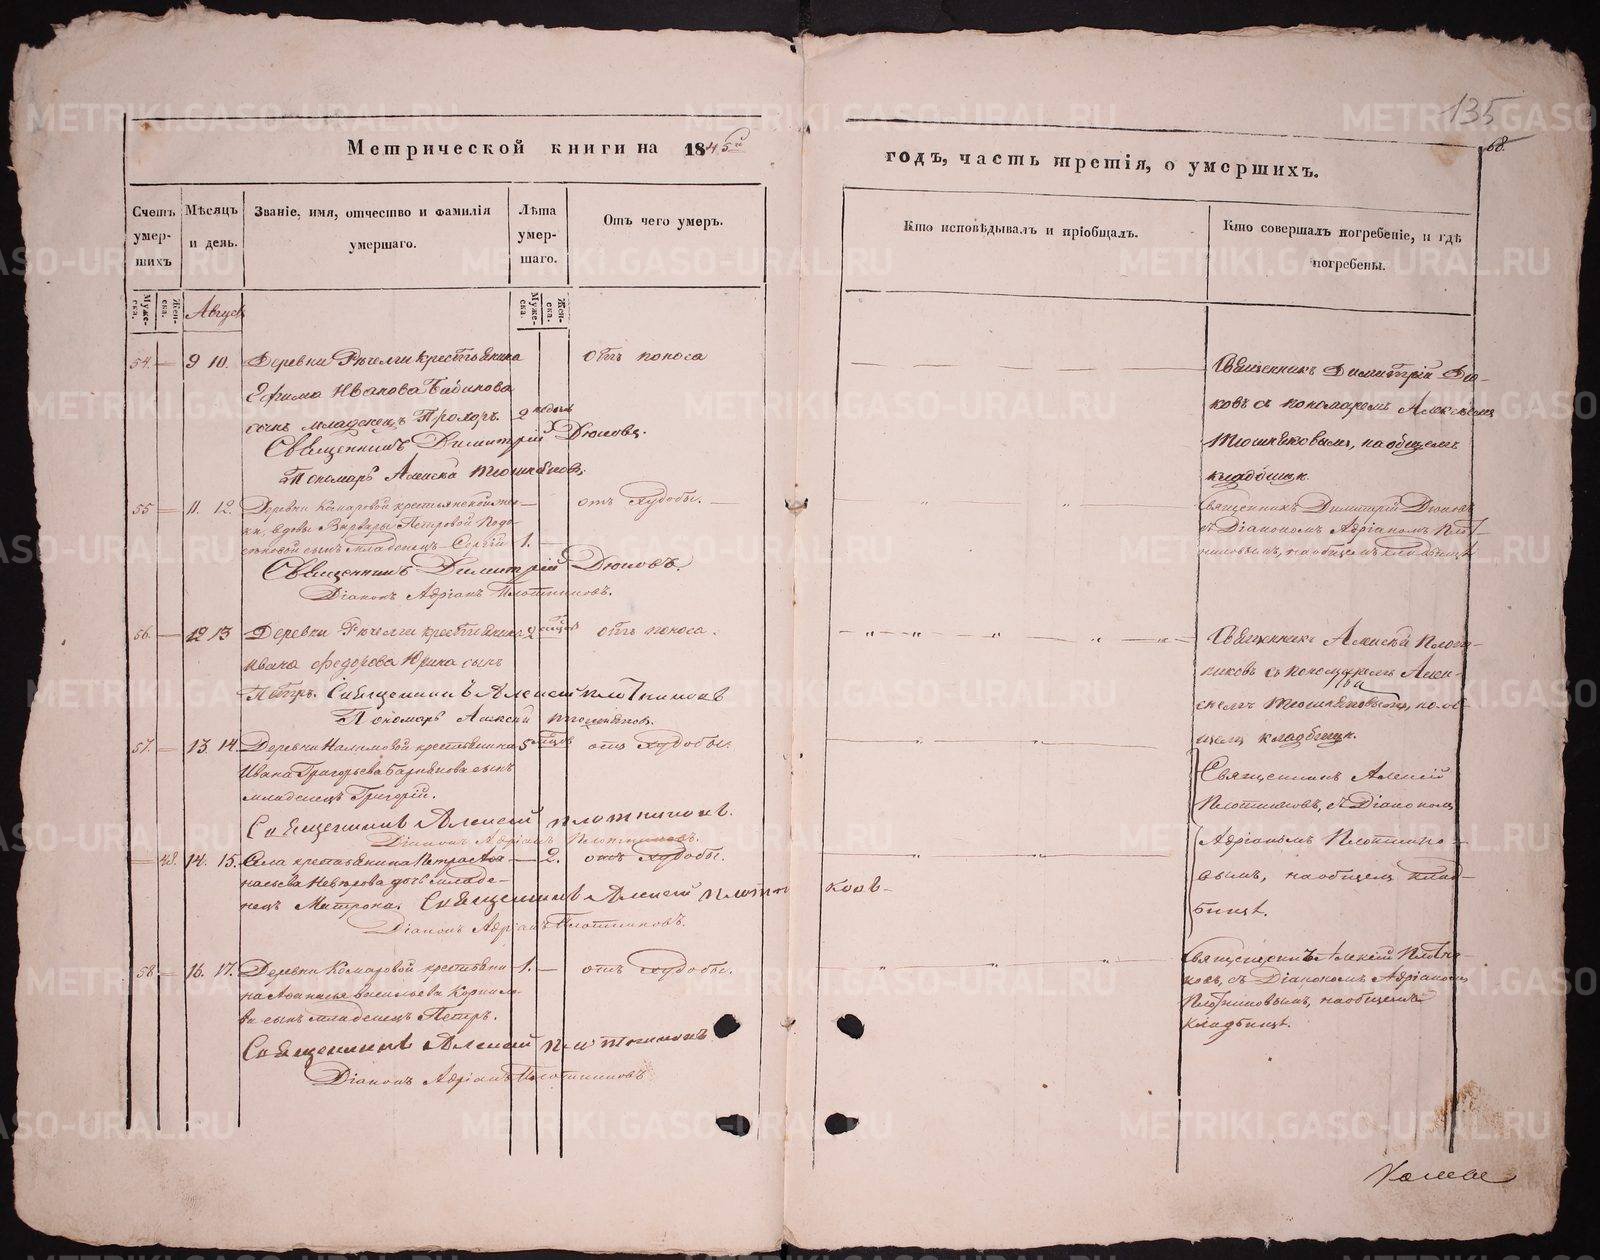 135
68.
Метрической книги на 1845й
годъ, часть третія, о умершихъ.
Счетъ умер-шихъ
Мѣсяцъ и день.
Званіе, имя, отчество и фамилія умершаго.
Лѣта умер-шаго.
Отъ чего умеръ.
Кто исповѣдывалъ и пріобщалъ.
Кто совершалъ погребеніе, и гдѣ погребены.
Муже-ска.
Жен-ска.
Муже-ска.
Жен-ска.
Август
54. 9 10. Деревни крестьянина
Ефима Иванова Бабинова
сынъ младенецъ Прохоръ. 2 недѣль
отъ поноса
Священникъ Димитрій Дюковъ.
Пономарь Алексѣй Тюшняковъ.
Священникъ Димитрій Дю-
ковъ с пономаремъ Алексѣемъ
Тюшняковымъ, на общемъ
кладбищѣ.
55 11. 12. Деревни Комаровой крестьянской жен-
ки, вдовы Варвары Петровой
сынъ младенецъ Сергій 1.
отъ худобы.
Священникъ Димитрій Дюковъ.
Діаконъ Адріанъ Плотниковъ.
Священникъ Димитрій Дюковъ
съ Діакономъ Адріаномъ Плот-
никовымъ, на общемъ кладбищѣ
56. 12 13 Деревни крестьянина 2
отъ поноса.
Ивана Федорова Юрина сынъ
Петръ. Священникъ Алексѣй Плотниковъ
Пономарь Алексѣй Тюшняковъ.
Священникъ Алексѣй Плот-
никовъ с пономаремъ Алек-
сѣемъ Тюшняковымъ, на об-
щемъ кладбищѣ.
57. 13. 14. Деревни Налимовой крестьянина 5
отъ худобы.
Ивана Григорьева сынъ
младенецъ Григорій.
Священникъ Алексѣй Плотниковъ.
Діаконъ Адріанъ Плотниковъ.
Священникъ Алексѣй
Плотниковъ, съ Діакономъ
Адріаномъ Плотнико-
вымъ, на общемъ клад-
бищѣ.
48. 14. 15. Села крестьянина Петра Афа-
насьева дочь младе-
нецъ Матрона. 2. отъ худобы.
Священникъ Алексѣй Плотниковъ
Діаконъ Адріанъ Плотниковъ.
58 16. 17. Деревни Комаровой крестьяни- 1.
отъ худобы.
на Афанасья Васильева Корнило-
ва сынъ младенецъ Петръ.
Священникъ Алексѣй Плотниковъ
Діаконъ Адріанъ Плотниковъ
Священникъ Алексѣй Плотни-
ковъ, съ Діакономъ Адріаномъ
Плотниковымъ, на общемъ
кладбищѣ.
METRIKI.GASO-URAL.RU